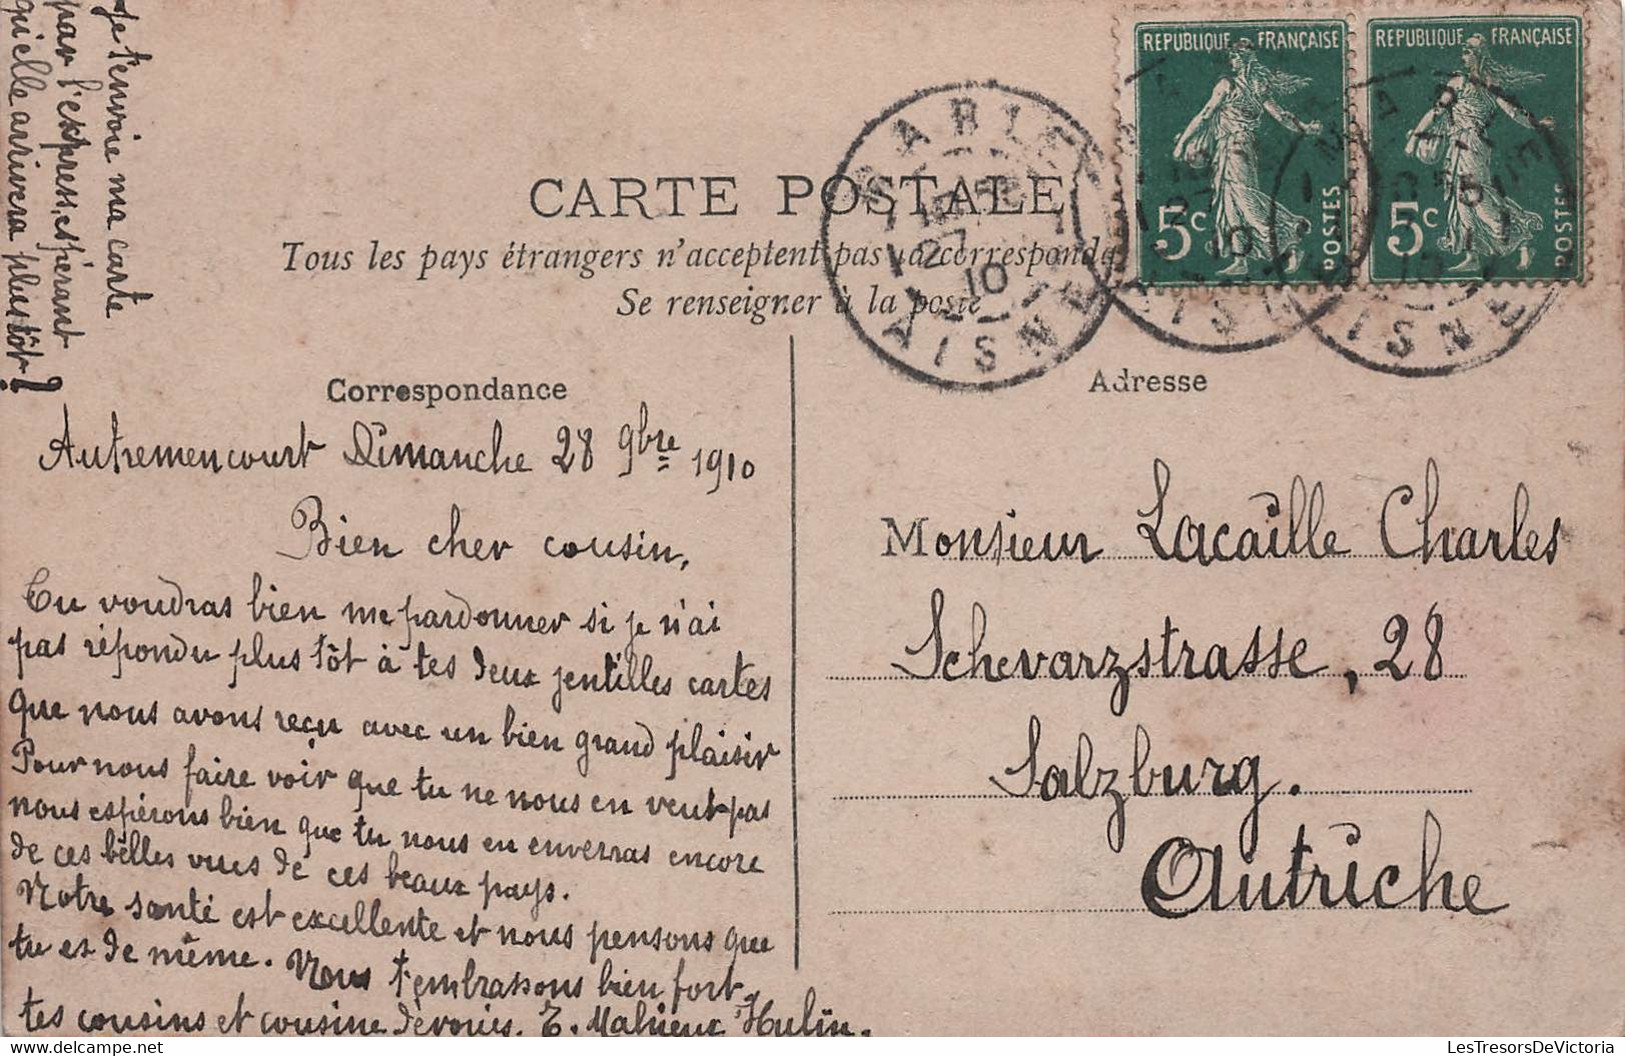 Je t'envoie ma carte
par l'express, espérant
qu'elle arrivera plus tôt !
REPUBLIQUE FRANÇAISE
5c
POSTES
REPUBLIQUE FRANÇAISE
5c
POSTES
MARLE
27
10
AISNE
CARTE POSTALE
Tous les pays étrangers n'acceptent pas la corresponda
Se renseigner à la poste
Correspondance
Autremencourt Dimanche 28 9bre 1910
Bien cher cousin,
Tu voudras bien me pardonner si je n'ai
pas répondu plus tôt à tes deux jentilles cartes
que nous avons reçu avec un bien grand plaisir
Pour nous faire voir que tu ne nous en veut pas
nous espérons bien que tu nous en enverras encore
de ces bèlles vues de ces beaux pays.
Notre santé est excellente et nous pensons que
tu es de même. Nous t'embrassons bien fort
tes cousins et cousine dévoués. E. Mahieux Hulin.
Adresse
Monsieur Lacaille Charles
Schevarzstrasse, 28
Salzburg.
Autriche
LesTresorsDeVictoria